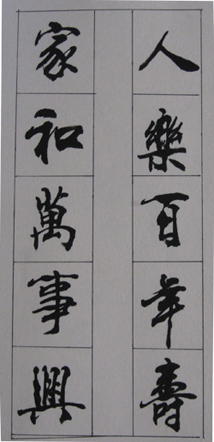 人樂百年壽
家和萬事興